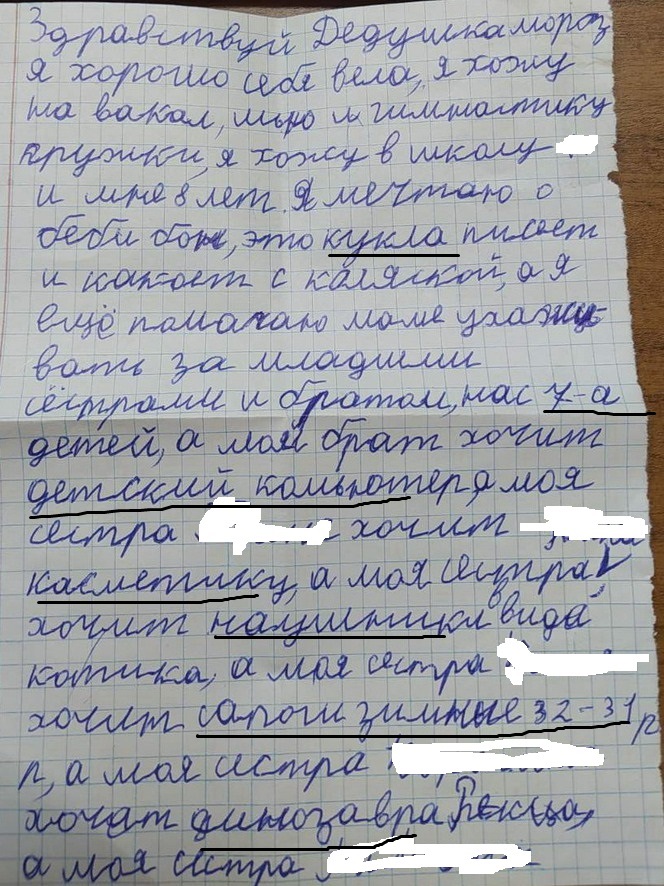 Здравствуй Дедушка мороз
я хорошо себя вела, я хожу
на вакал, и гимнастику
кружки, я хожу в школу
и мне 8 лет. Я мечтаю о
беби бон, это кукла писает
и какает с коляской, а я
ещё памагаю маме ухажи-
вать за младшими
сёстрами и братом, нас 7-а
детей, а мой брат хочит
детский компютер а моя
сестра хочит
касметику, а моя сестра
хочит наушники в виде
котика, а моя сестра
хочит сапоги зимные 32-31 р
р, а моя сестра
хочат динозавра Рекса,
а моя сестра